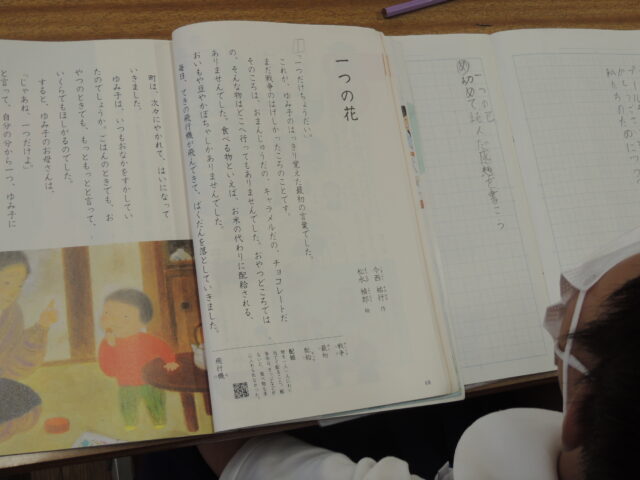 一つの花
今西 祐行 作
松永 禎郎 絵
「一つだけちょうだい。」
これが、ゆみ子のはっきり覚えた最初の言葉でした。
まだ戦争のはげしかったころのことです。
そのころは、おまんじゅうだの、キャラメルだの、チョコレートだ
の、そんな物はどこへ行ってもありませんでした。おやつどころでは
ありませんでした。食べる物といえば、お米の代わりに配給される、
おいもや豆やかぼちゃしかありませんでした。
毎日、てきの飛行機が飛んできて、ばくだんを落としていきました。
戦争
最初
配給
飛行機
町は、次々にやかれて、はいになって
いきました。
ゆみ子は、いつもおなかをすかしてい
たのでしょうか。ごはんのときでも、お
やつのときでも、もっともっとと言って、
いくらでもほしがるのでした。
すると、ゆみ子のお母さんは、
「じゃあね、一つだけよ。」
と言って、自分の分から一つ、ゆみ子に
一つの花
め 初めて読んだ感想を書こう